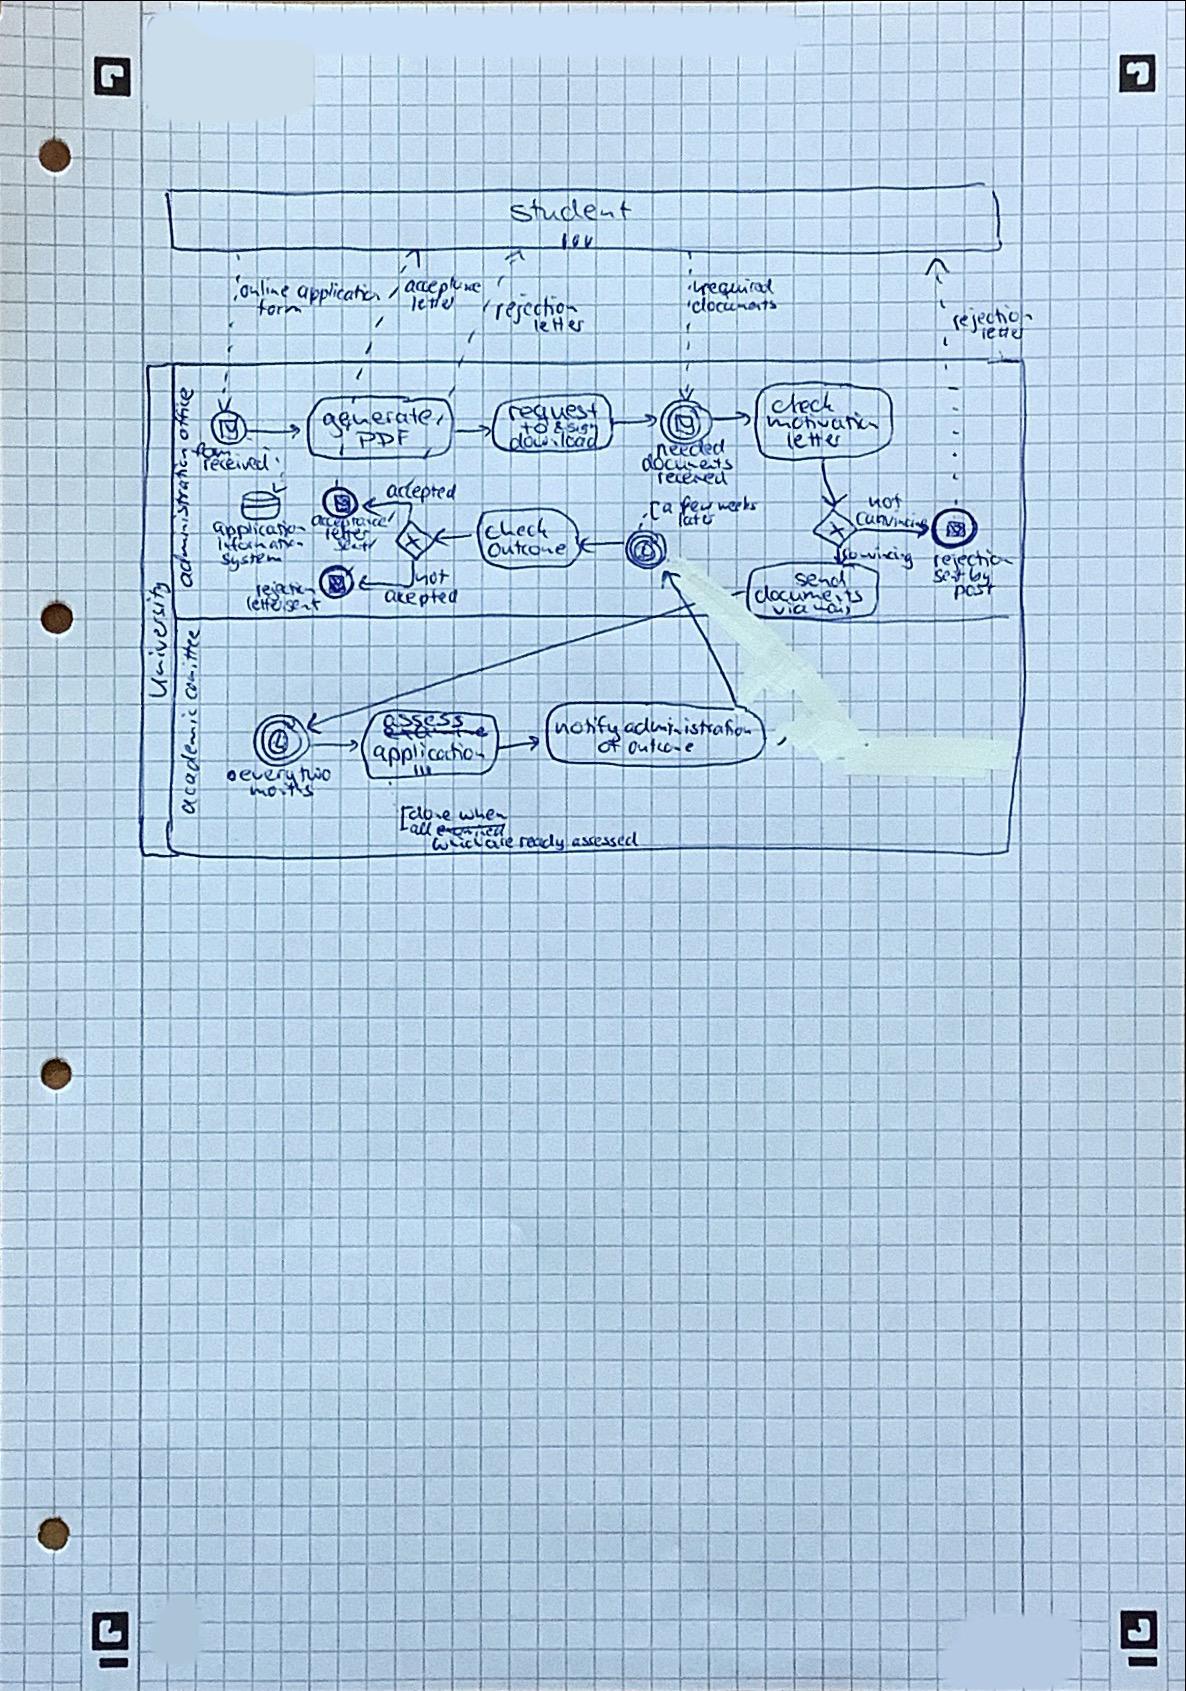 student
online application
form
acceptance
letter
rejection
letter
required
documents
rejection
letter
University
administration office
form
received
generate
PDF
request
to sign
download
needed
documents
received
check
motivation
letter
application
Information
System
accepted
acceptance
letter
sent
not
accepted
rejection
letter sent
check
outcome
a few weeks
later
not
convincing
convincing
rejection
sent by
post
send
documents
via
academic comittee
every two
months
assess
application
notify administration
of outcome
done when
all
which are ready assessed